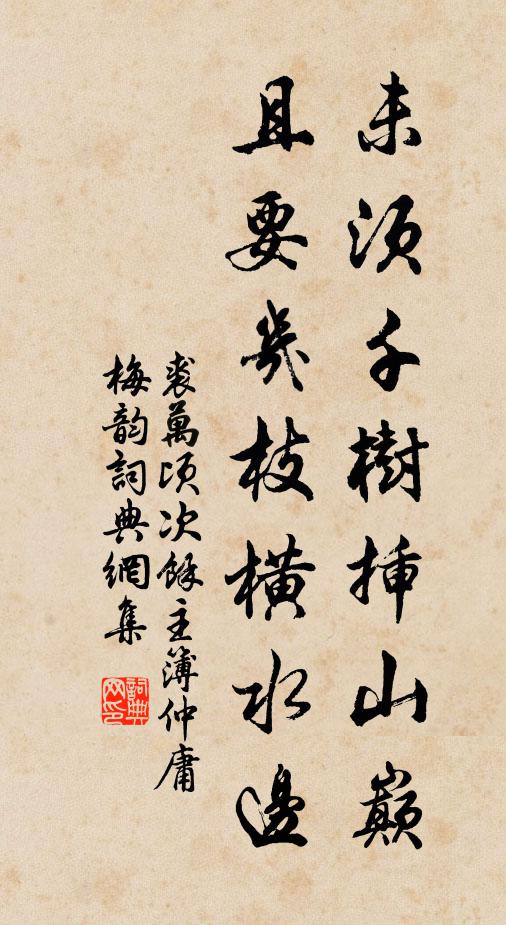 未須千樹插山巔
且要幾枝橫水邊
裘萬頃次餘主簿仲庸
梅韵詞典網集
詞典网印